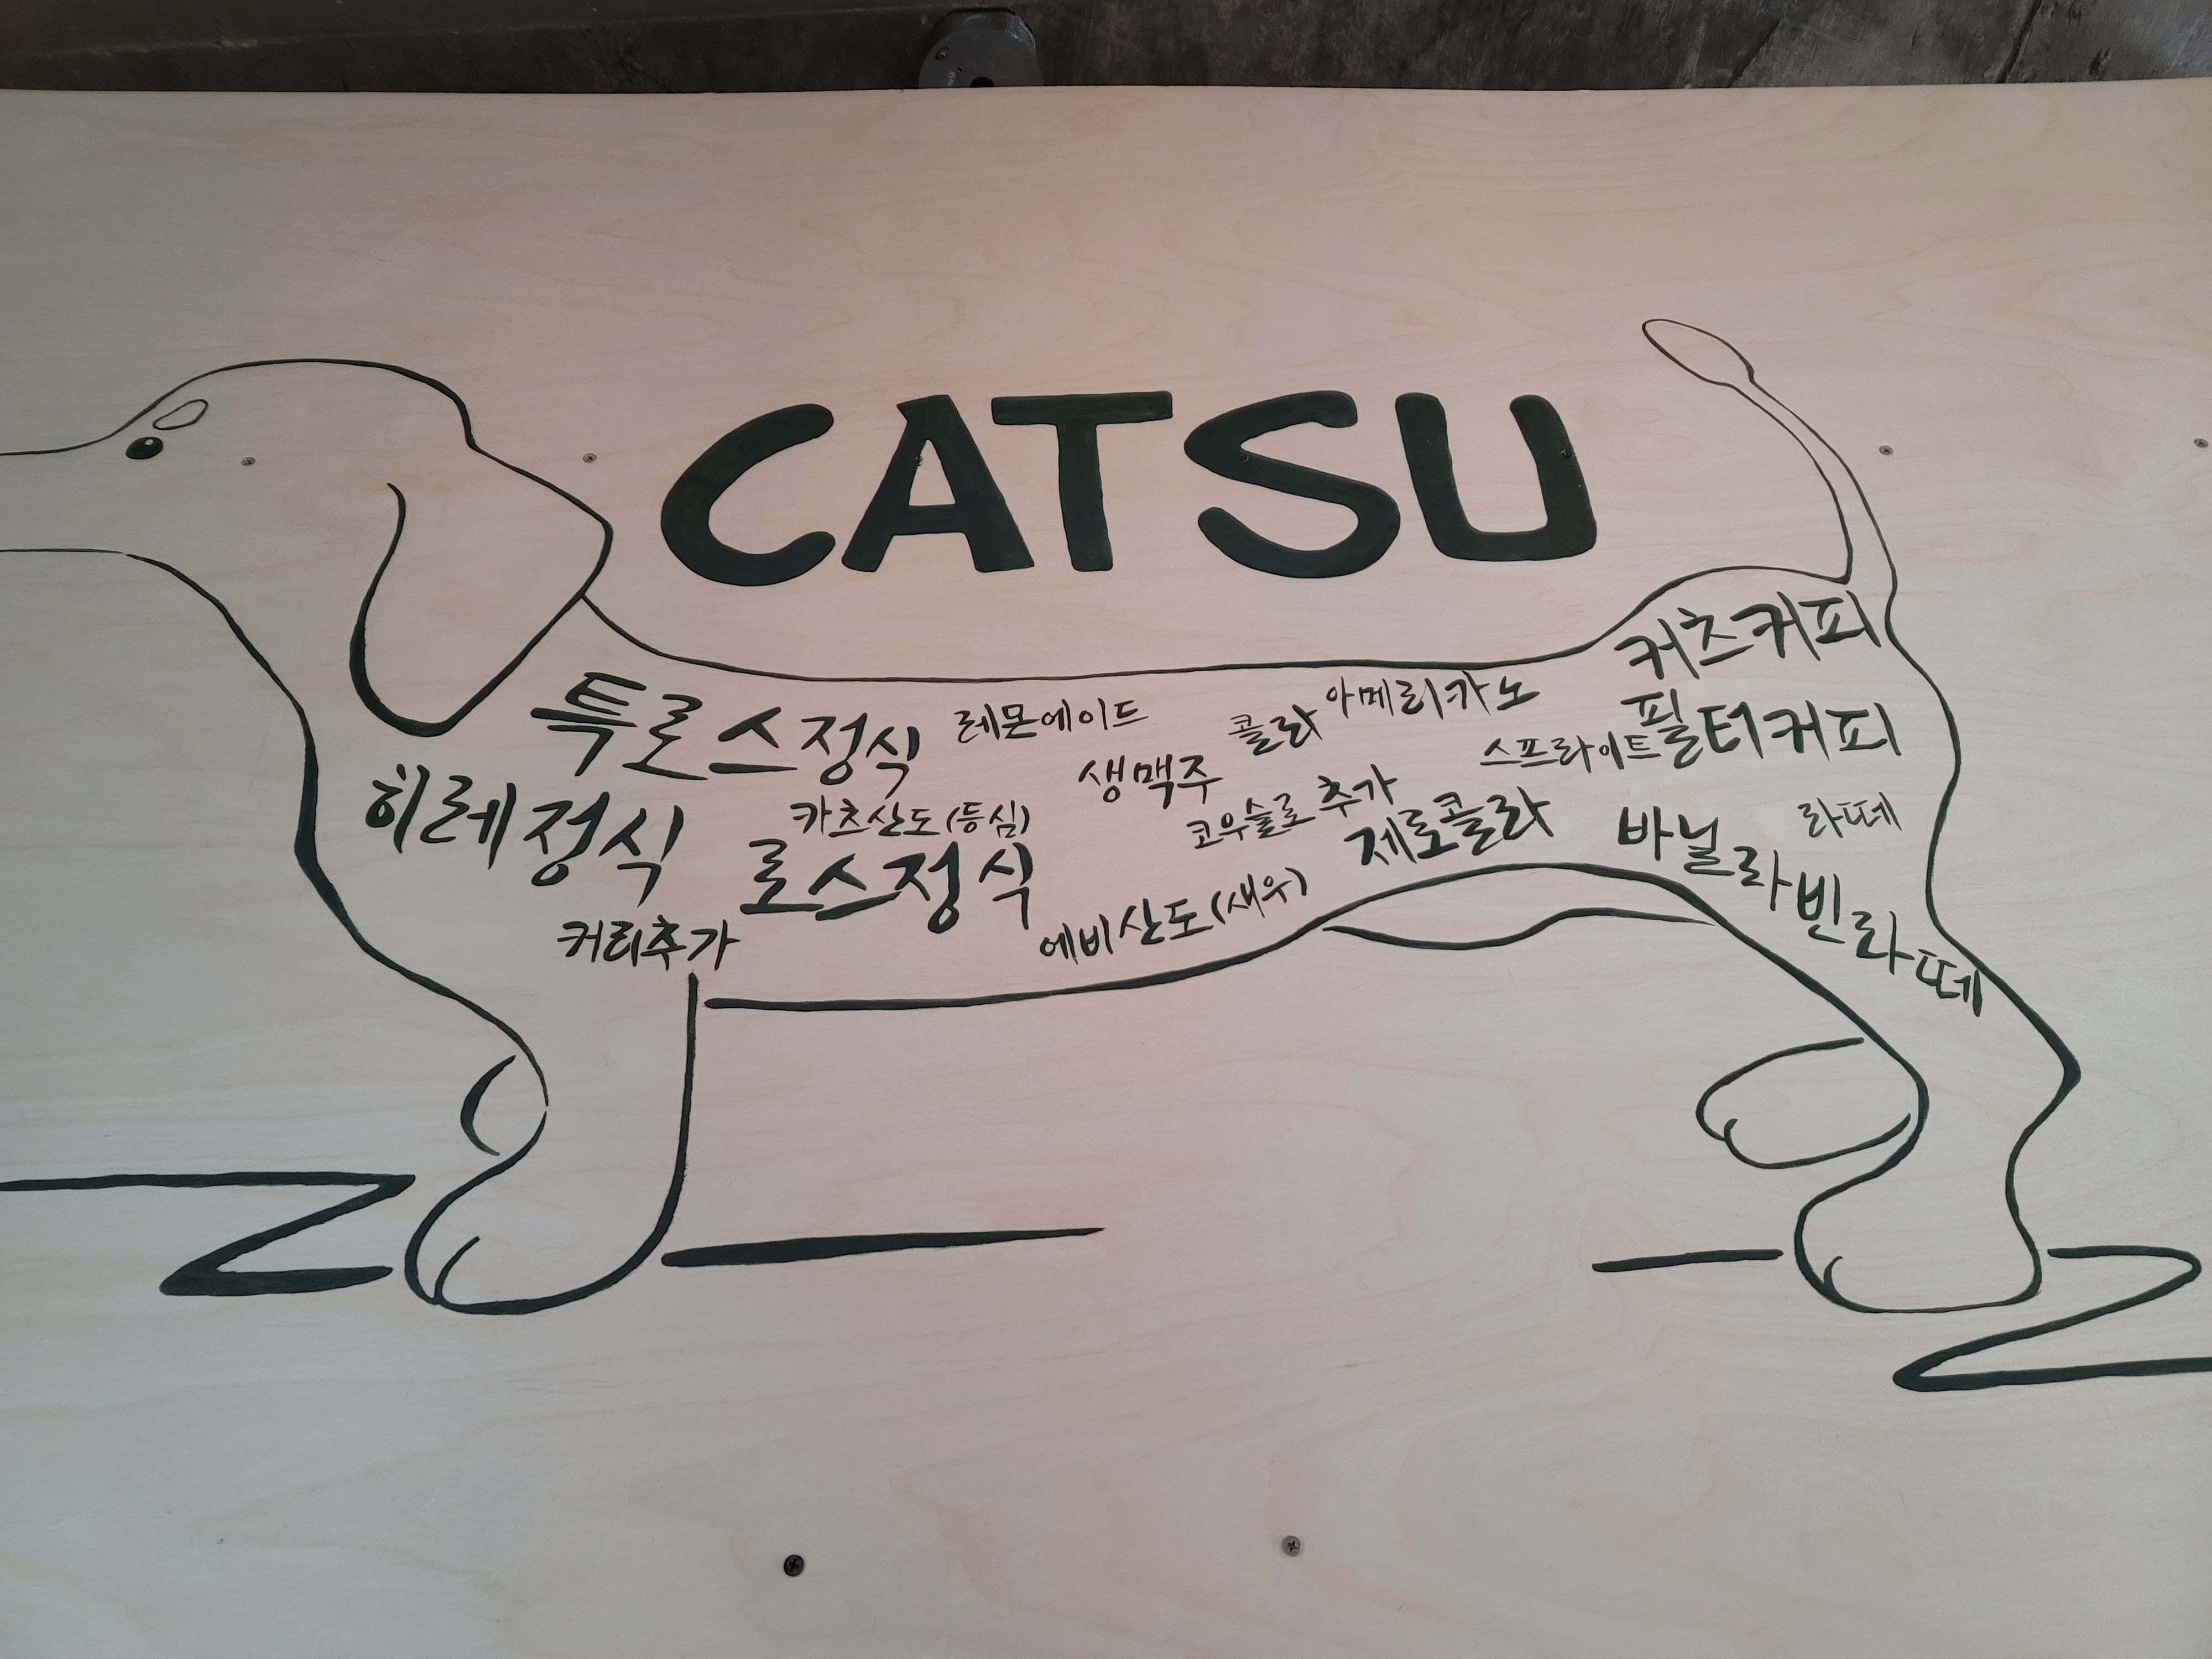 CATSU
커츠커피
특로스정식
레몬에이드
콜라
아메리카노
필터커피
스프라이트
히레정식
카츠산도(등심)
생맥주
코우슬로 추가
제로콜라
라떼
바닐라빈라떼
로스정식
커리추가
에비산도(새우)